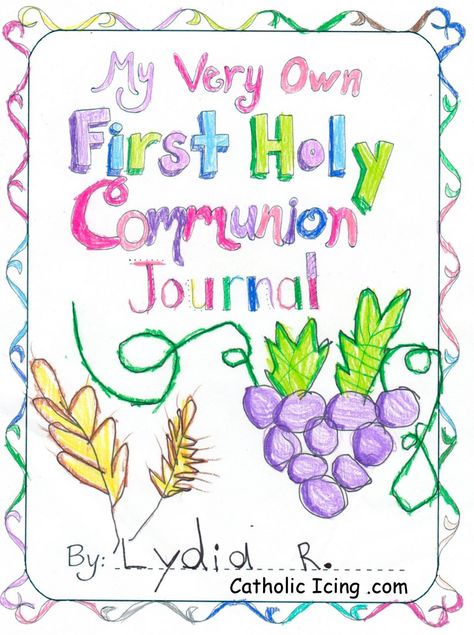 My Very Own
First Holy
Communion
Journal
By: Lydia R.
Catholic Icing .com